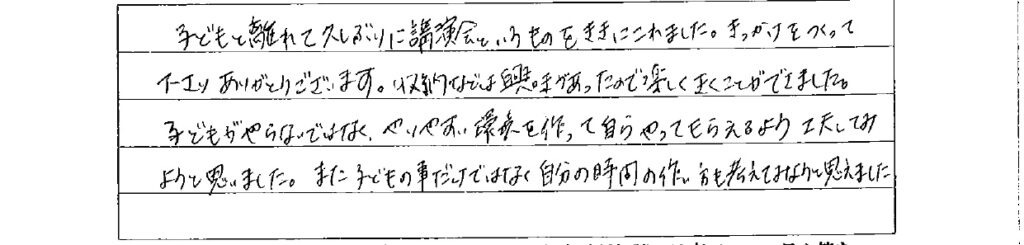 子どもと離れて久しぶりに講演会というものをききにこれました。きっかけをつくって
下さりありがとうございます。収納などは興味があったので楽しくきくことができました。
子どもがやらないではなく、やりやすい環境を作って自らやってもらえるよう工夫してみ
ようと思いました。また子どもの事だけではなく自分の時間の作り方も考えてみようと思えました